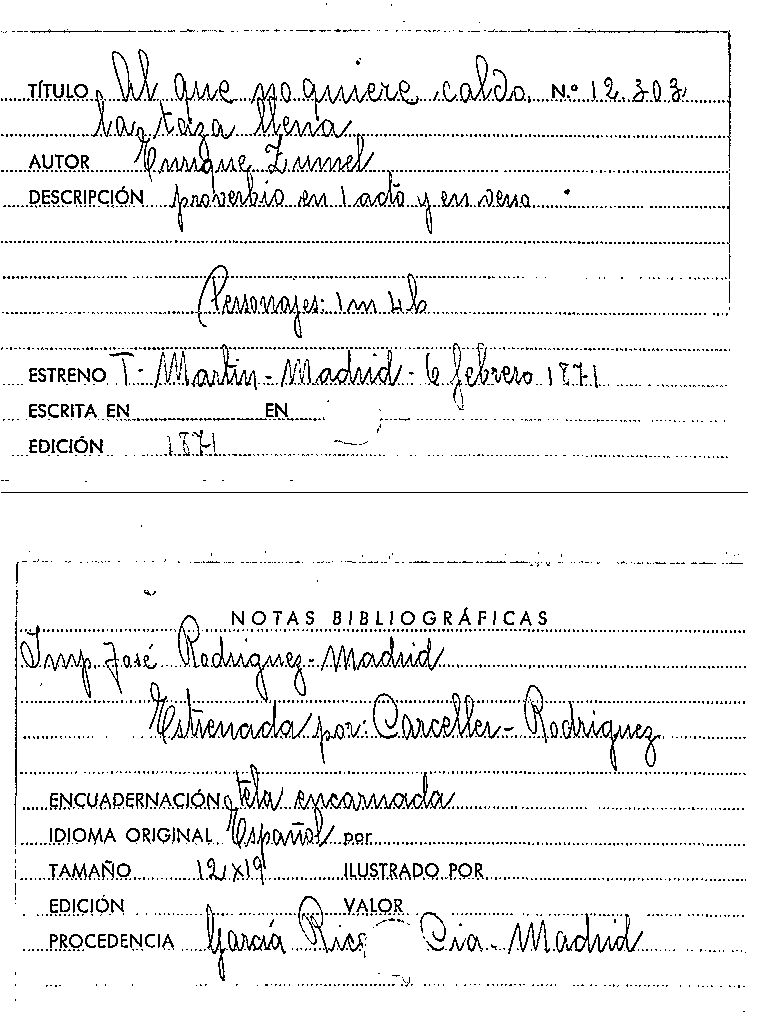 TÍTULO Al que no quiere caldo, N.º 12.303
la taza llena
AUTOR Enrique Zumel
DESCRIPCIÓN proverbio en 1 acto y en verso
Personajes: 1m 4h
ESTRENO T. Martin - Madrid - 6 febrero 1871
ESCRITA EN EN
EDICIÓN 1871
NOTAS BIBLIOGRÁFICAS
Imp. José Rodriguez - Madrid
Estrenada por: Carceller - Rodriguez
ENCUADERNACIÓN tela encarnada
IDIOMA ORIGINAL Español por
TAMAÑO 12x19 ILUSTRADO POR
EDICIÓN VALOR
PROCEDENCIA García Rico Cia - Madrid